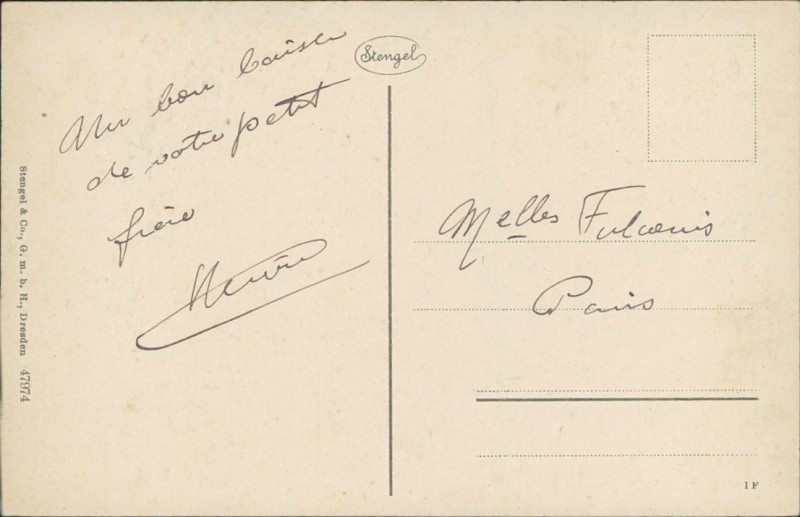 Stengel
Un bon baiser
de votre petit
frère
Melles Fulconis
Paris
Stengel & Co., G. m. b. H., Dresden 47974
I F